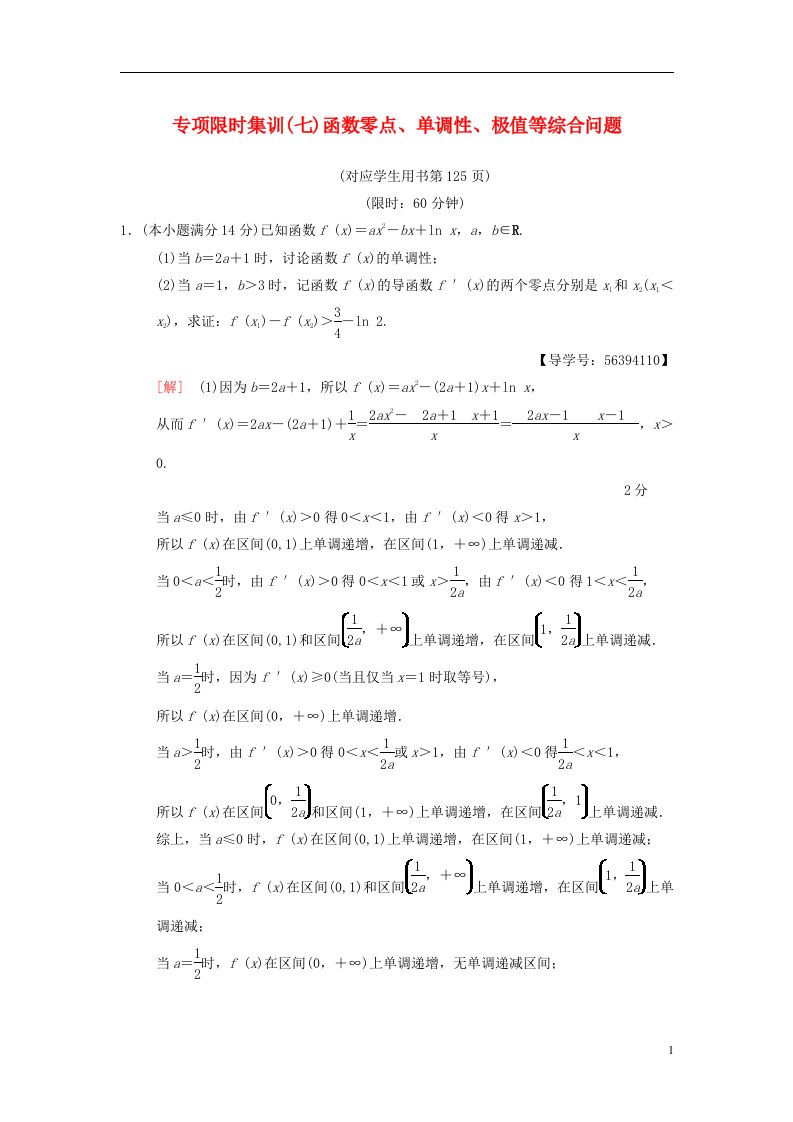 专项限时集训(七)函数零点、单调性、极值等综合问题
(对应学生用书第125页)
(限时：60分钟)
1．(本小题满分14分)已知函数f (x)＝ax²－bx＋ln x，a，b∈R.
(1)当b＝2a＋1时，讨论函数f (x)的单调性；
(2)当a＝1，b>3时，记函数f (x)的导函数f ′(x)的两个零点分别是x₁和x₂(x₁＜
x₂)，求证：f (x₁)－f (x₂)＞3/4－ln 2.
【导学号：56394110】
[解] (1)因为b＝2a＋1，所以f (x)＝ax²－(2a＋1)x＋ln x，
从而f ′(x)＝2ax－(2a＋1)＋1/x＝2ax²－ 2a＋1 x＋1/x＝ 2ax－1 x－1/x，x＞
0.
2分
当a≤0时，由f ′(x)＞0得0＜x＜1，由f ′(x)＜0得x＞1，
所以f (x)在区间(0,1)上单调递增，在区间(1，＋∞)上单调递减．
当0＜a＜1/2时，由f ′(x)＞0得0＜x＜1或x＞1/2a，由f ′(x)＜0得1＜x＜1/2a，
所以f (x)在区间(0,1)和区间(1/2a，＋∞)上单调递增，在区间(1，1/2a)上单调递减．
当a＝1/2时，因为f ′(x)≥0(当且仅当x＝1时取等号)，
所以f (x)在区间(0，＋∞)上单调递增．
当a＞1/2时，由f ′(x)＞0得0＜x＜1/2a或x＞1，由f ′(x)＜0得1/2a＜x＜1，
所以f (x)在区间(0，1/2a)和区间(1，＋∞)上单调递增，在区间(1/2a，1)上单调递减．
综上，当a≤0时，f (x)在区间(0,1)上单调递增，在区间(1，＋∞)上单调递减；
当0＜a＜1/2时，f (x)在区间(0,1)和区间(1/2a，＋∞)上单调递增，在区间(1，1/2a)上单
调递减；
当a＝1/2时，f (x)在区间(0，＋∞)上单调递增，无单调递减区间；
1